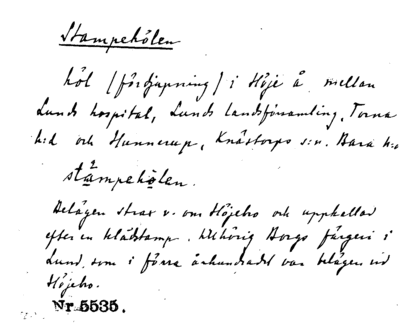 Stampehölen
höl (fördjupning) i Höje å mellan
Lunds hospital, Lunds landsförsamling, Torna
h:d och Hunnerup, Knästorps s:n. Bara h:d
stampehölen.
Belägen strax v. om Höjebro och uppkallad
efter en klädstamp, tillhörig Borgs färgeri i
Lund, som i förra århundradet var belägen vid
Höjebro.
Nr 5535.